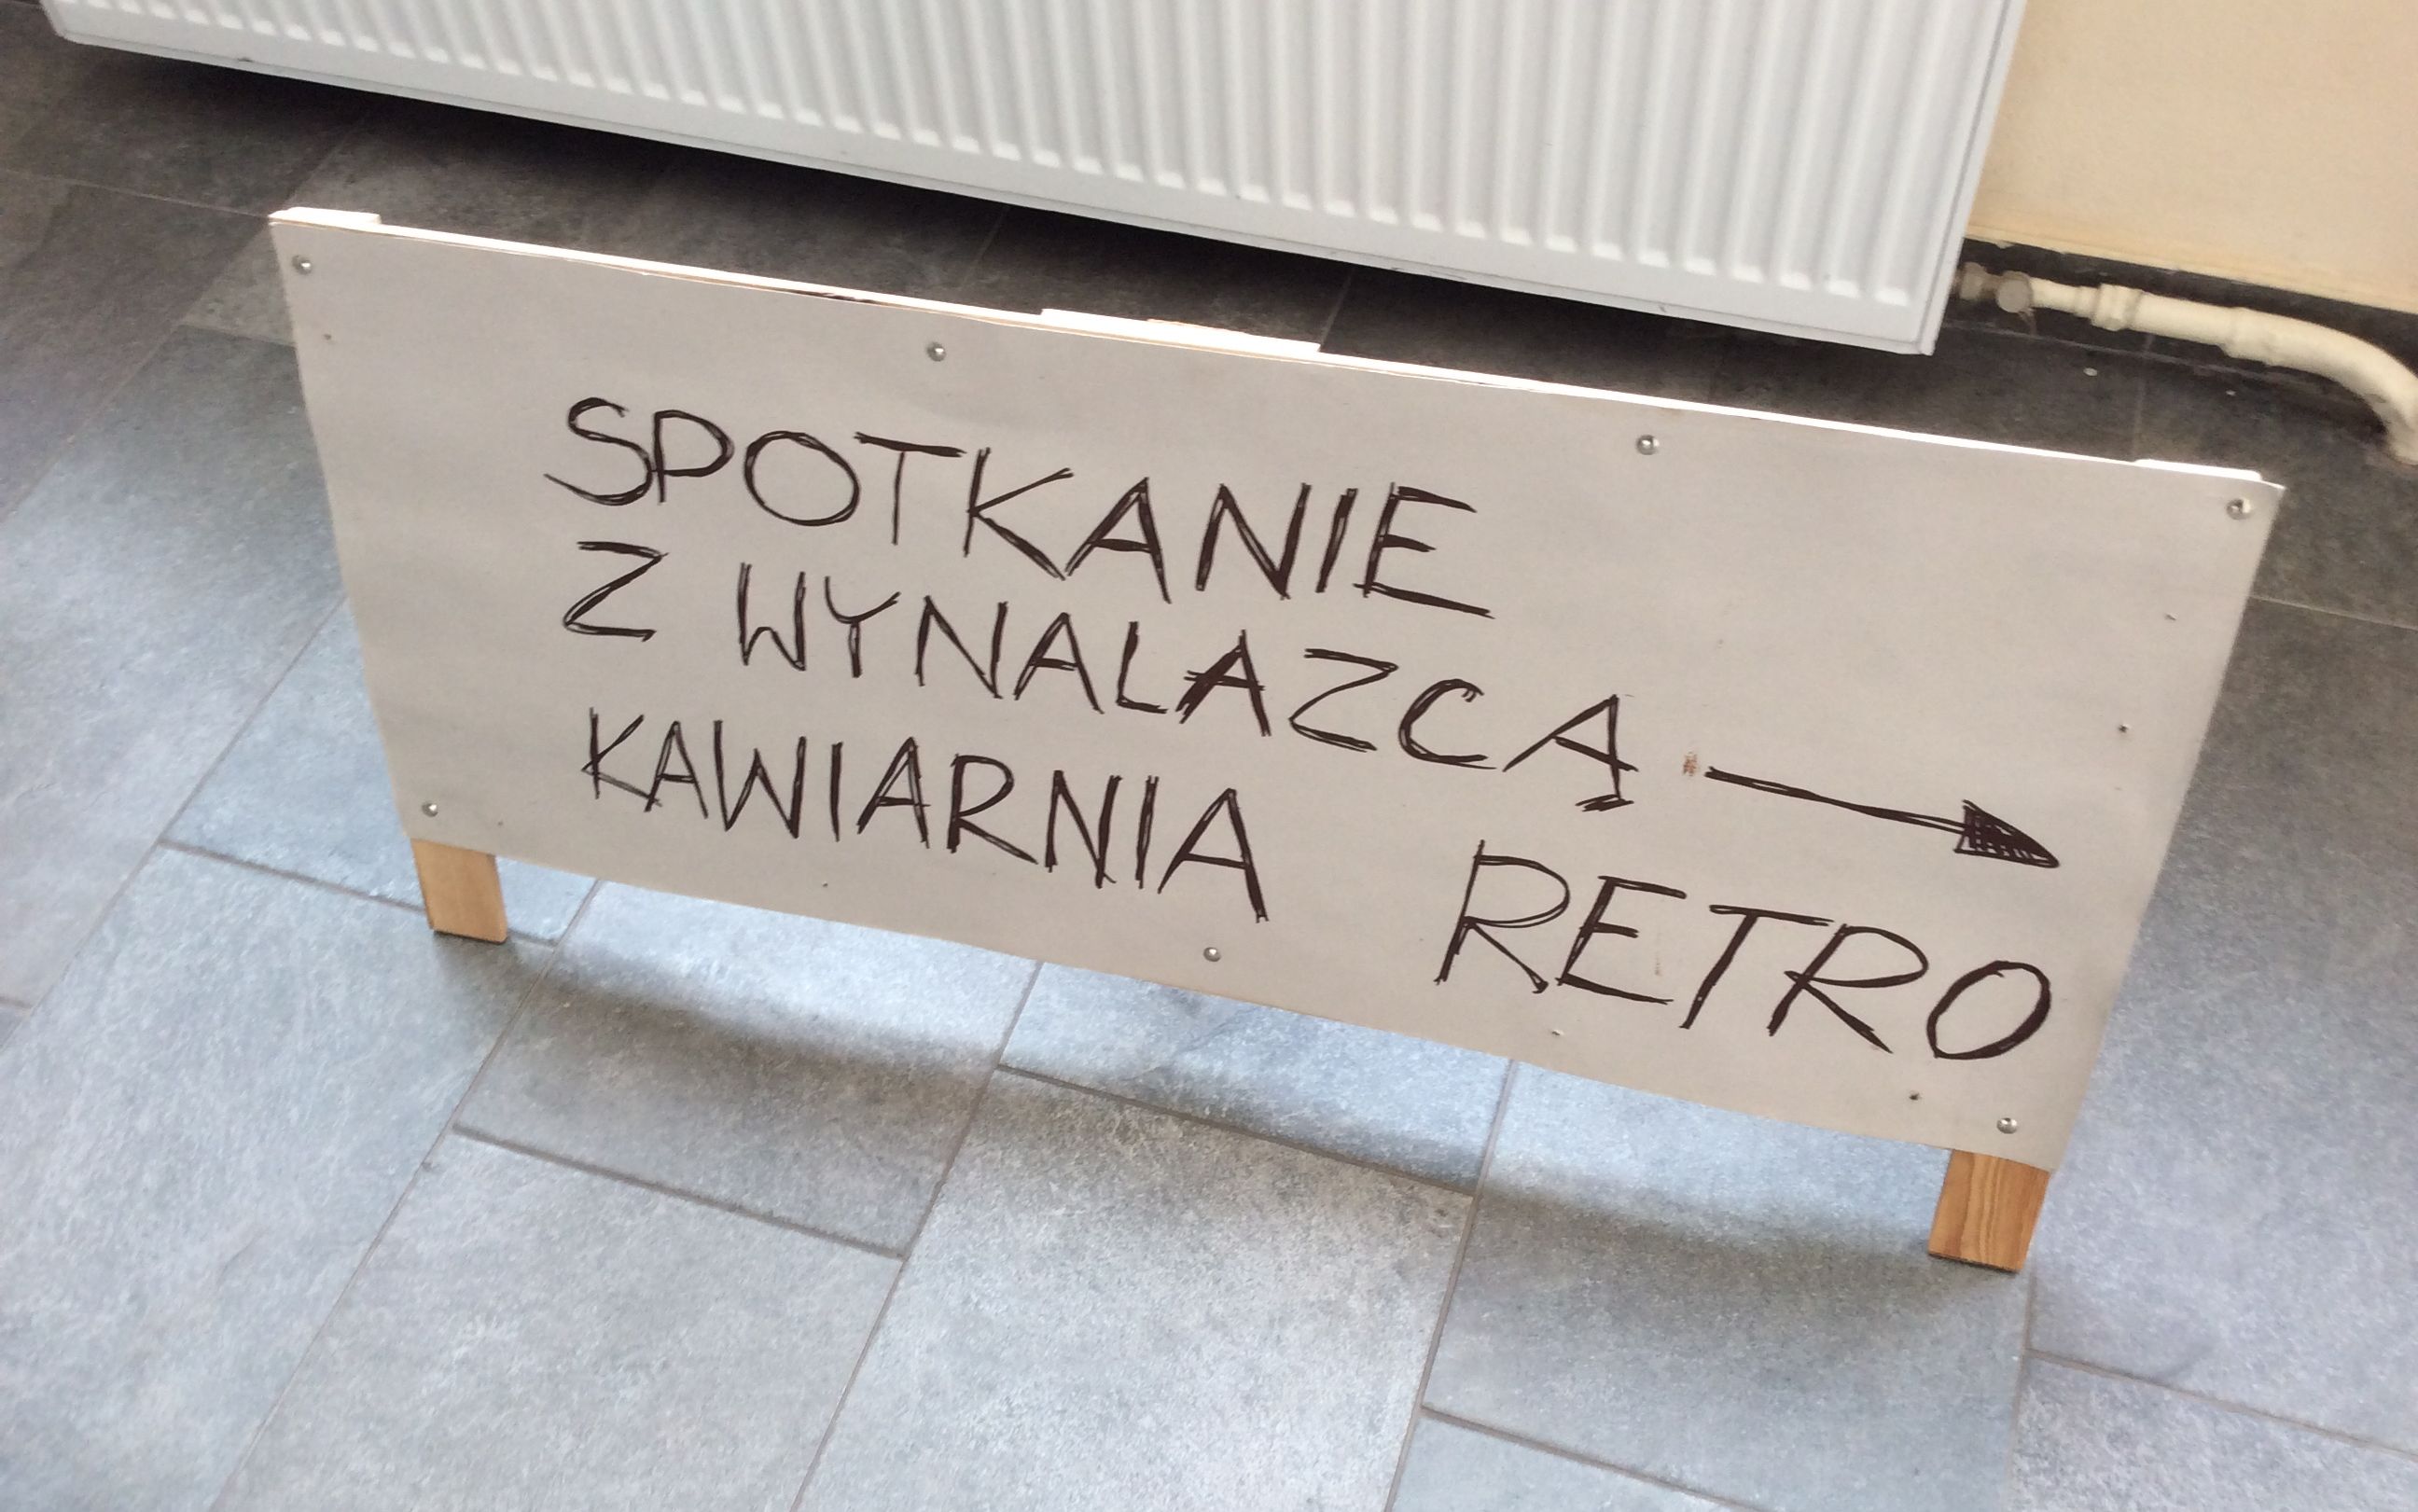 SPOTKANIE
Z WYNALAZCĄ →
KAWIARNIA RETRO